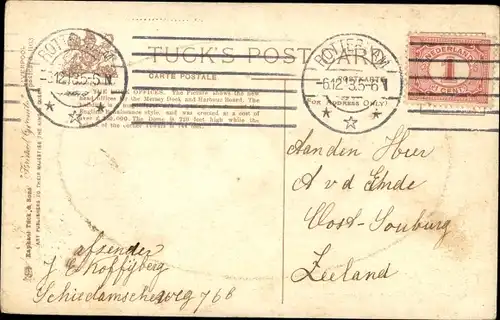 TUCK'S POST CARD
CARTE POSTALE
POSTKARTE
(FOR ADDRESS ONLY)
ROTTERDAM
6.12.13.5-6 N
ROTTERDAM
NEDERLAND
1
CENT
OFFICES. The Picture shows the new
Offices of the Mersey Dock and Harbour Board. The
style, and was erected at a cost of
The Dome is 220 feet high while the
of the corner
Raphael Tuck & Sons'
ART PUBLISHERS TO THEIR MAJESTIES THE KING AND QUEEN
Aan den Heer
A v d Ende
Oost-Souburg
Zeeland
afzender
J C Koffijberg
Schiedamscheweg 76b